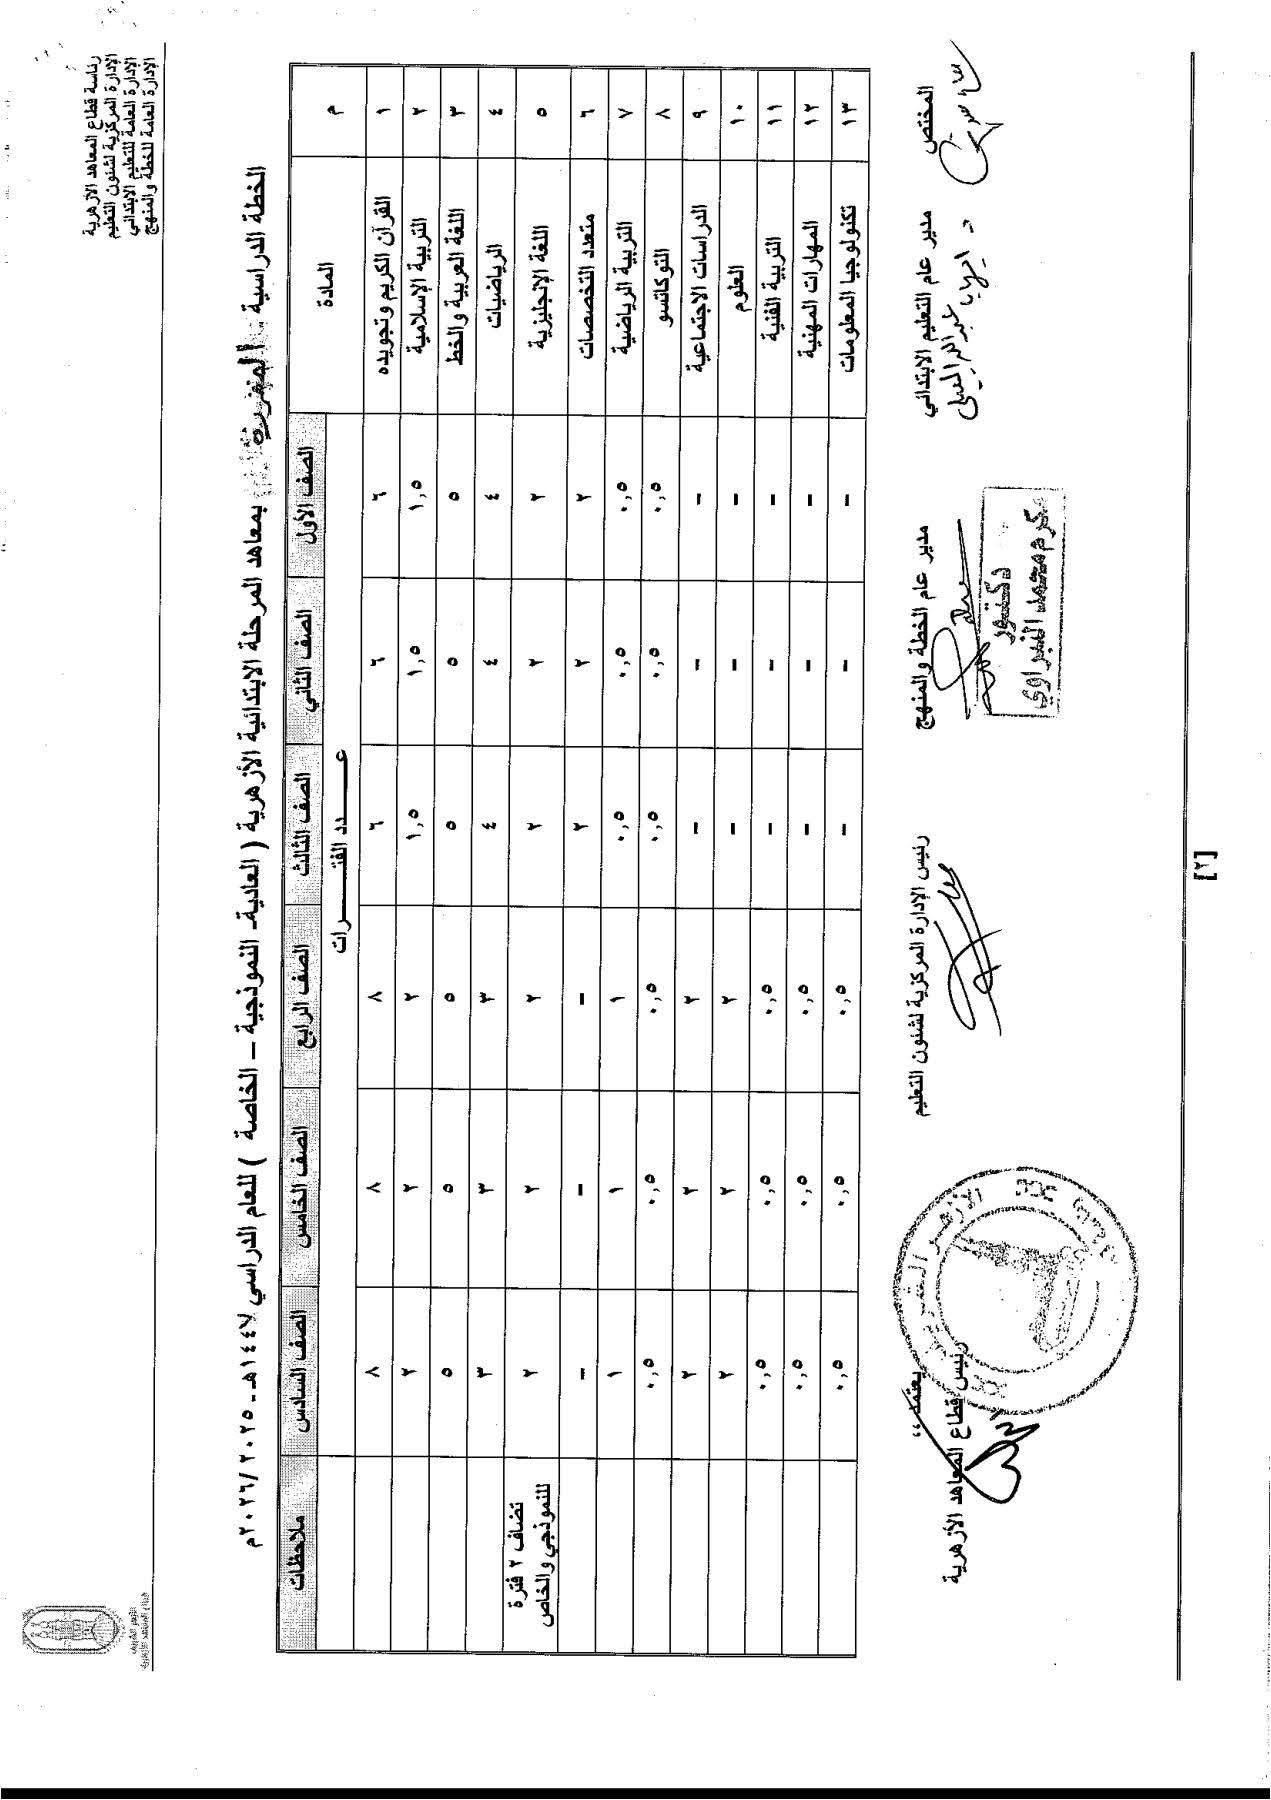 رئاسة قطاع المعاهد الأزهرية
الإدارة المركزية لشئون التعليم
الإدارة العامة للتعليم الابتدائي
الإدارة العامة للخطة والمنهج
الأزهر الشريف
قطاع المعاهد الأزهرية
الخطة الدراسية المقررة بمعاهد المرحلة الابتدائية الأزهرية ( العادية- النموذجية – الخاصة ) للعام الدراسي ١٤٤٧هـ - ٢٠٢٥/ ٢٠٢٦م
م المادة الصف الأول الصف الثاني الصف الثالث الصف الرابع الصف الخامس الصف السادس ملاحظات
عـــدد الفتـــرات
١ القرآن الكريم وتجويده ٦ ٦ ٦ ٨ ٨ ٨
٢ التربية الإسلامية ١,٥ ١,٥ ١,٥ ٢ ٢ ٢
٣ اللغة العربية والخط ٥ ٥ ٥ ٥ ٥ ٥
٤ الرياضيات ٤ ٤ ٤ ٣ ٣ ٣
٥ اللغة الإنجليزية ٢ ٢ ٢ ٢ ٢ ٢ تضاف ٢ فترة للنموذجي والخاص
٦ متعدد التخصصات ٢ ٢ ٢ – – –
٧ التربية الرياضية ٠,٥ ٠,٥ ٠,٥ ١ ١ ١
٨ التوكاتسو ٠,٥ ٠,٥ ٠,٥ ٠,٥ ٠,٥ ٠,٥
٩ الدراسات الاجتماعية – – – ٢ ٢ ٢
١٠ العلوم – – – ٢ ٢ ٢
١١ التربية الفنية – – – ٠,٥ ٠,٥ ٠,٥
١٢ المهارات المهنية – – – ٠,٥ ٠,٥ ٠,٥
١٣ تكنولوجيا المعلومات – – – ٠,٥ ٠,٥ ٠,٥
المختص
مدير عام التعليم الابتدائي
مدير عام الخطة والمنهج
دكتور
مكرم محمد النبراوي
رئيس الإدارة المركزية لشئون التعليم
يعتمد ،،
رئيس قطاع المعاهد الأزهرية
الأزهر الشريف
[٢]